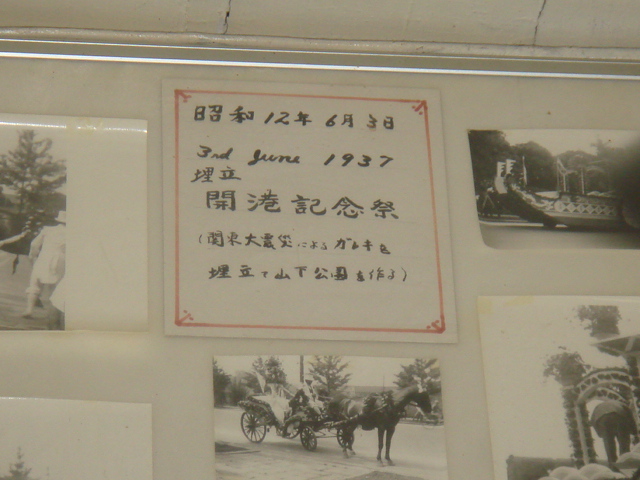 昭和12年6月3日
3rd June 1937
埋立
開港記念祭
(関東大震災によるガレキを
埋立て山下公園を作る)